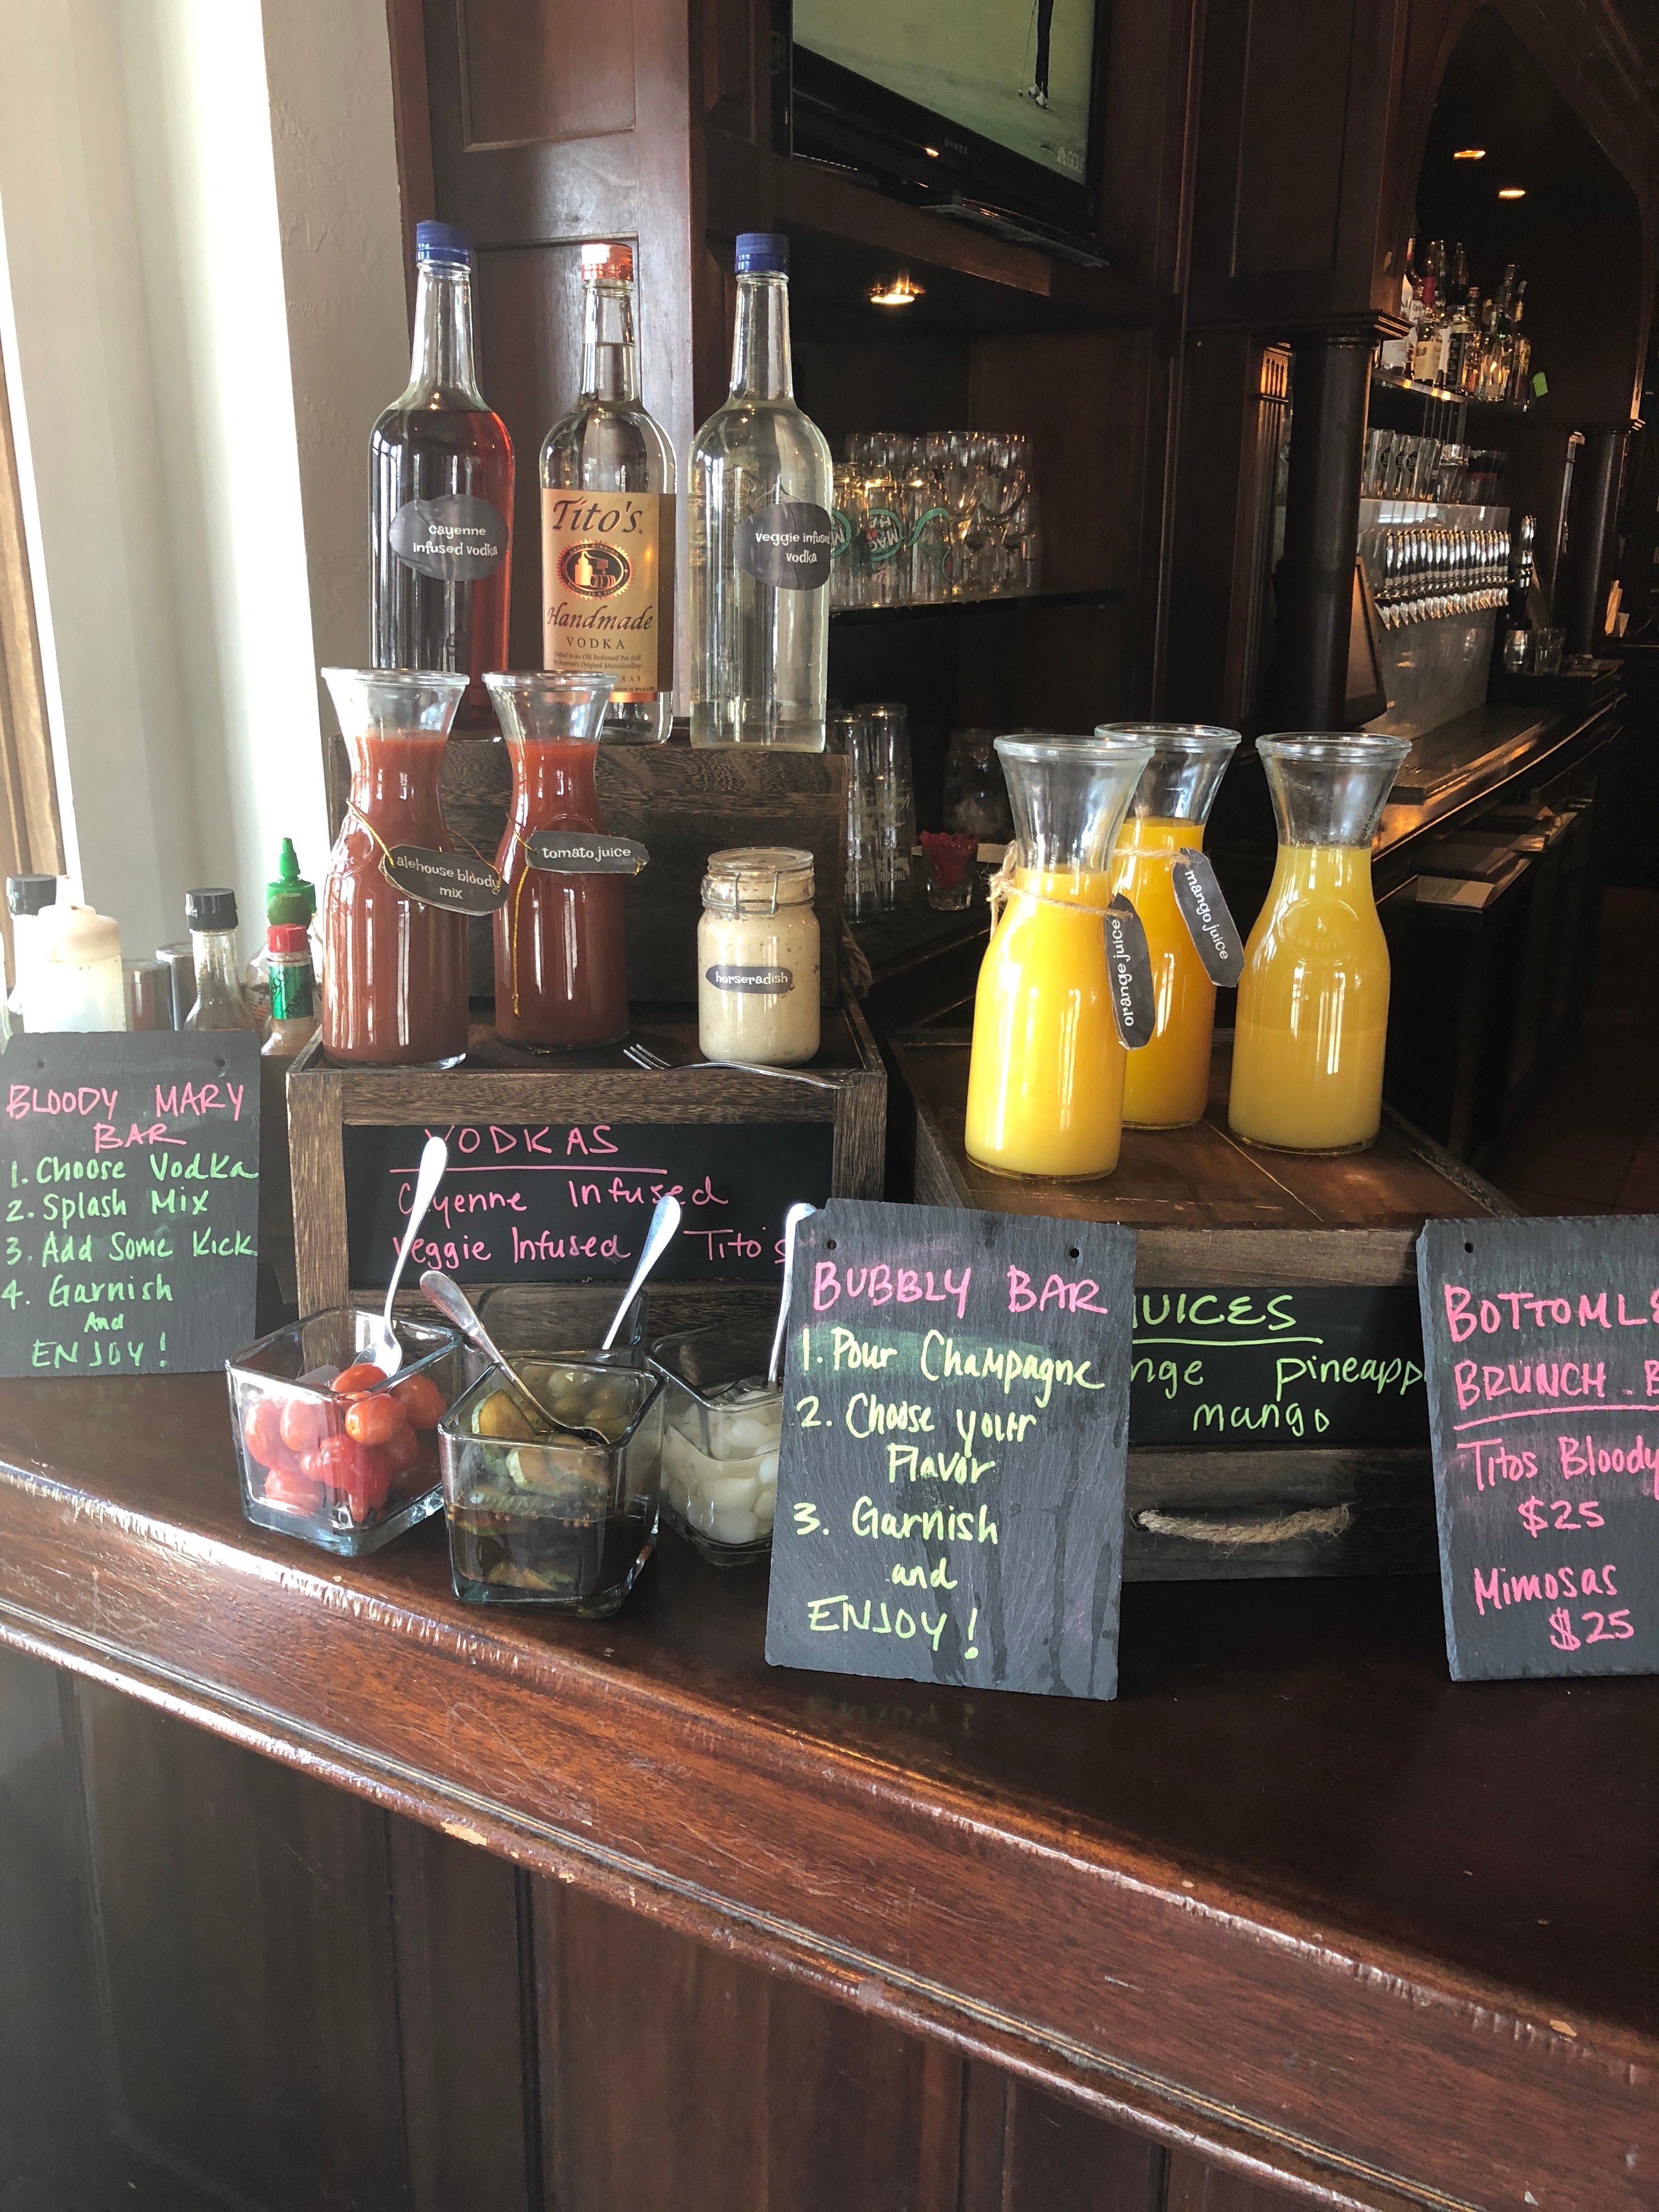 DYNEX
GOLF
cayenne
infused vodka
Tito's
Handmade
VODKA
veggie infused
vodka
alehouse bloody
mix
tomato juice
horseradish
orange juice
mango juice
BLOODY MARY
BAR
1. Choose Vodka
2. Splash Mix
3. Add Some Kick
4. Garnish
And
ENJOY!
VODKAS
Cayenne Infused
Veggie Infused Tito's
BUBBLY BAR
1. Pour Champagne
2. Choose your
Flavor
3. Garnish
and
ENJOY!
UICES
nge pineapp
mango
BOTTOMLE
BRUNCH B
Titos Bloody
$25
Mimosas
$25